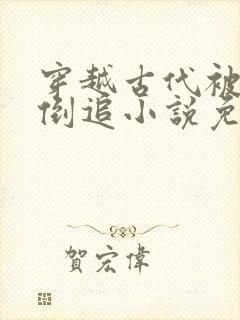 穿越古代被
倒追小說免
賀宏偉